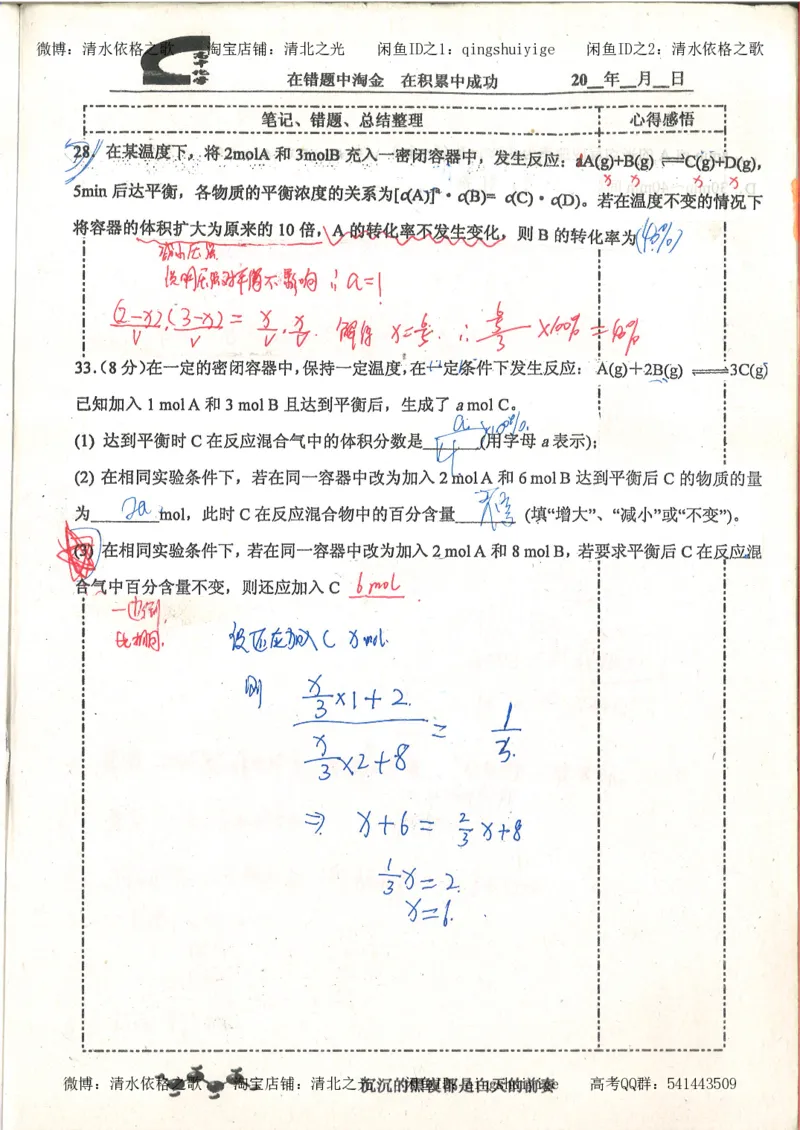 微博：清水依格之歌 淘宝店铺：清北之光 闲鱼ID之1：qingshuiyige 闲鱼ID之2：清水依格之歌
高中化学
在错题中淘金 在积累中成功 20__年__月__日
笔记、错题、总结整理 心得感悟
28．在某温度下，将2molA和3molB充入一密闭容器中，发生反应：aA(g)+B(g)⇌C(g)+D(g)，
x x x x
5min后达平衡，各物质的平衡浓度的关系为[c(A)]ᵃ·c(B)= c(C)·c(D)。若在温度不变的情况下
将容器的体积扩大为原来的10倍，A的转化率不发生变化，则B的转化率为(40%)
减小压强
说明压强对平衡不影响 ∴a=1
(2-x)/V·(3-x)/V = x/V·x/V. 解得 x=6/5. ∴ (6/5)/3 ×100% = 40%
33.(8分)在一定的密闭容器中,保持一定温度,在一定条件下发生反应： A(g)＋2B(g) ⇌3C(g)
已知加入1 mol A和3 mol B且达到平衡后，生成了a mol C。
(1) 达到平衡时C在反应混合气中的体积分数是 a/4 ×100% (用字母a表示);
(2) 在相同实验条件下，若在同一容器中改为加入2 mol A和6 mol B达到平衡后C的物质的量
为 2a mol，此时C在反应混合物中的百分含量 不变 (填“增大”、“减小”或“不变”)。
(3) 在相同实验条件下，若在同一容器中改为加入2 mol A和8 mol B，若要求平衡后C在反应混
合气中百分含量不变，则还应加入C 6mol
一边倒
比相同.
设还应加入C x mol.
则 (x/3×1+2)/(x/3×2+8) = 1/3.
⇒ x+6= 2/3 x+8
1/3 x=2.
x=6.
微博：清水依格之歌 淘宝店铺：清北之光 高考QQ群：541443509
沉沉的黑夜都是白天的前奏